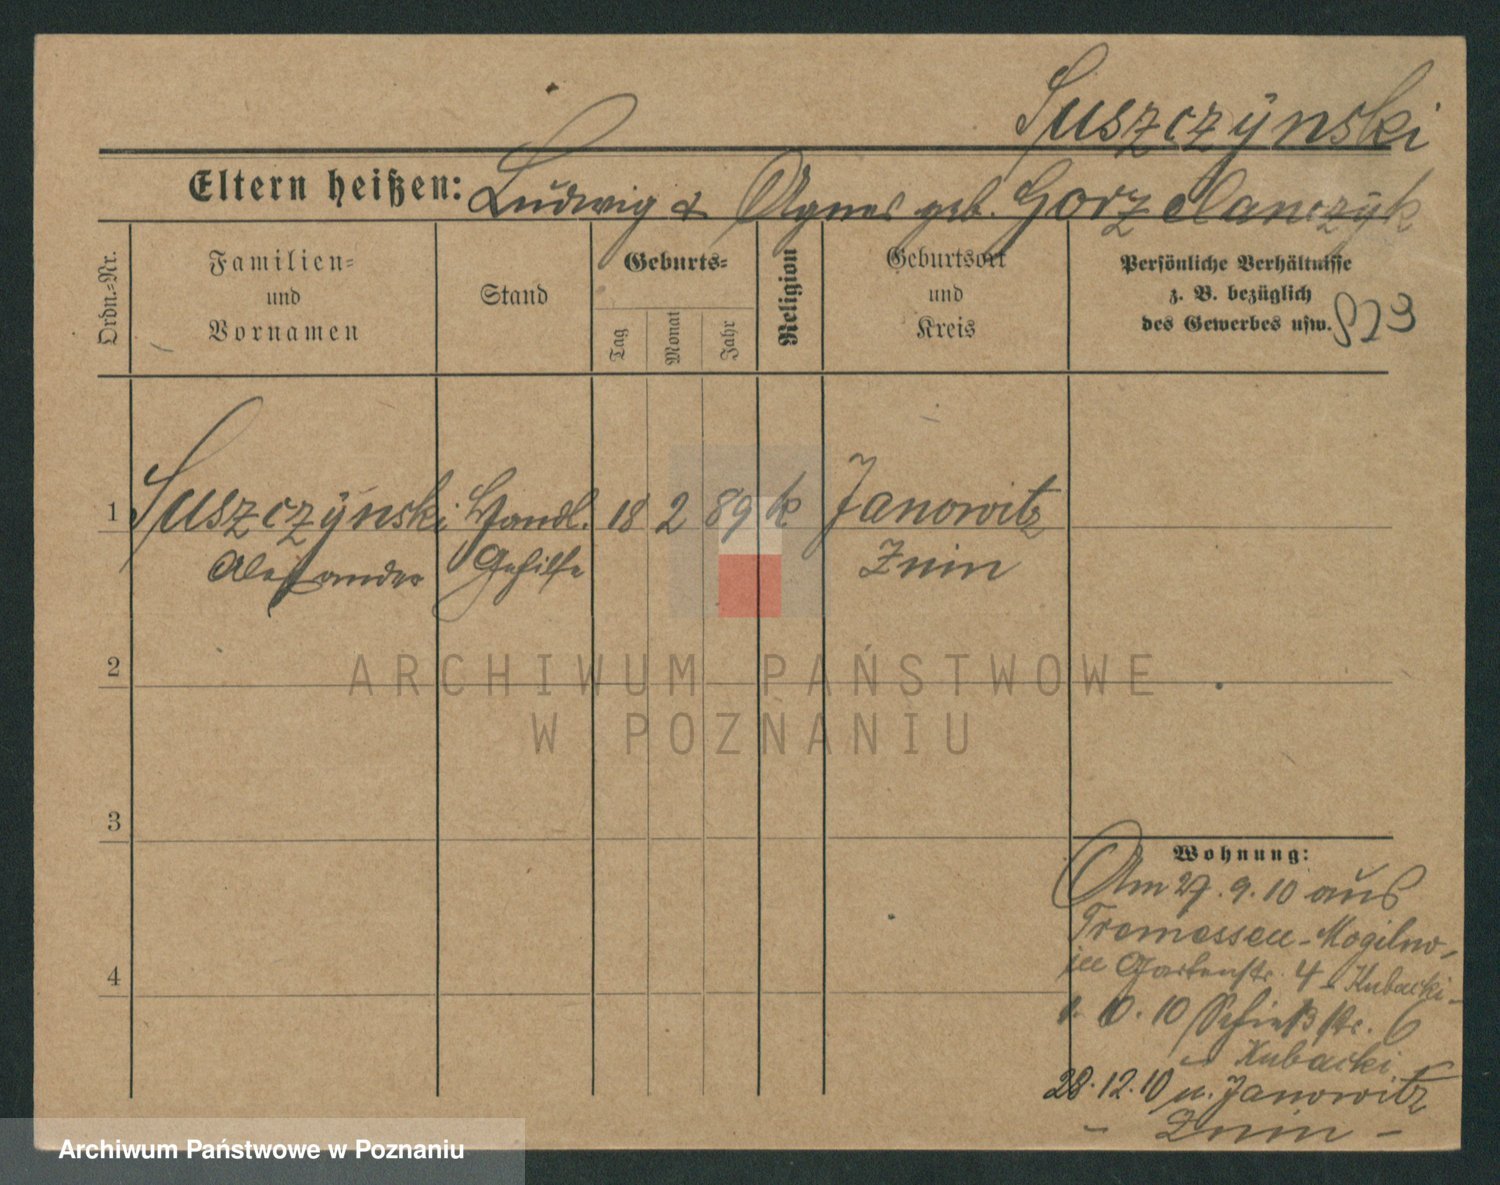 Suszczÿnski
Eltern heißen: Ludwig & Agnes geb. Gorzelanczÿk
Ordn.-Nr.
Familien-
und
Vornamen
Stand
Geburts-
Tag
Monat
Jahr
Religion
Geburtsort
und
Kreis
Persönliche Verhältnisse
z. B. bezüglich
des Gewerbes usw.
1 Suszczÿnski Handl. 18 2 89 k Janowitz
Alexander Gehilfe Znin
2
ARCHIWUM PAŃSTWOWE
W POZNANIU
3
4
Wohnung:
Am 27. 9. 10 aus
Tremessen - Mogilno,
in Gartenstr. 4 - Kubacki -
1. 10. 10 Schießstr. 6
Kubacki
28. 12. 10 n. Janowitz
- Znin -
Archiwum Państwowe w Poznaniu